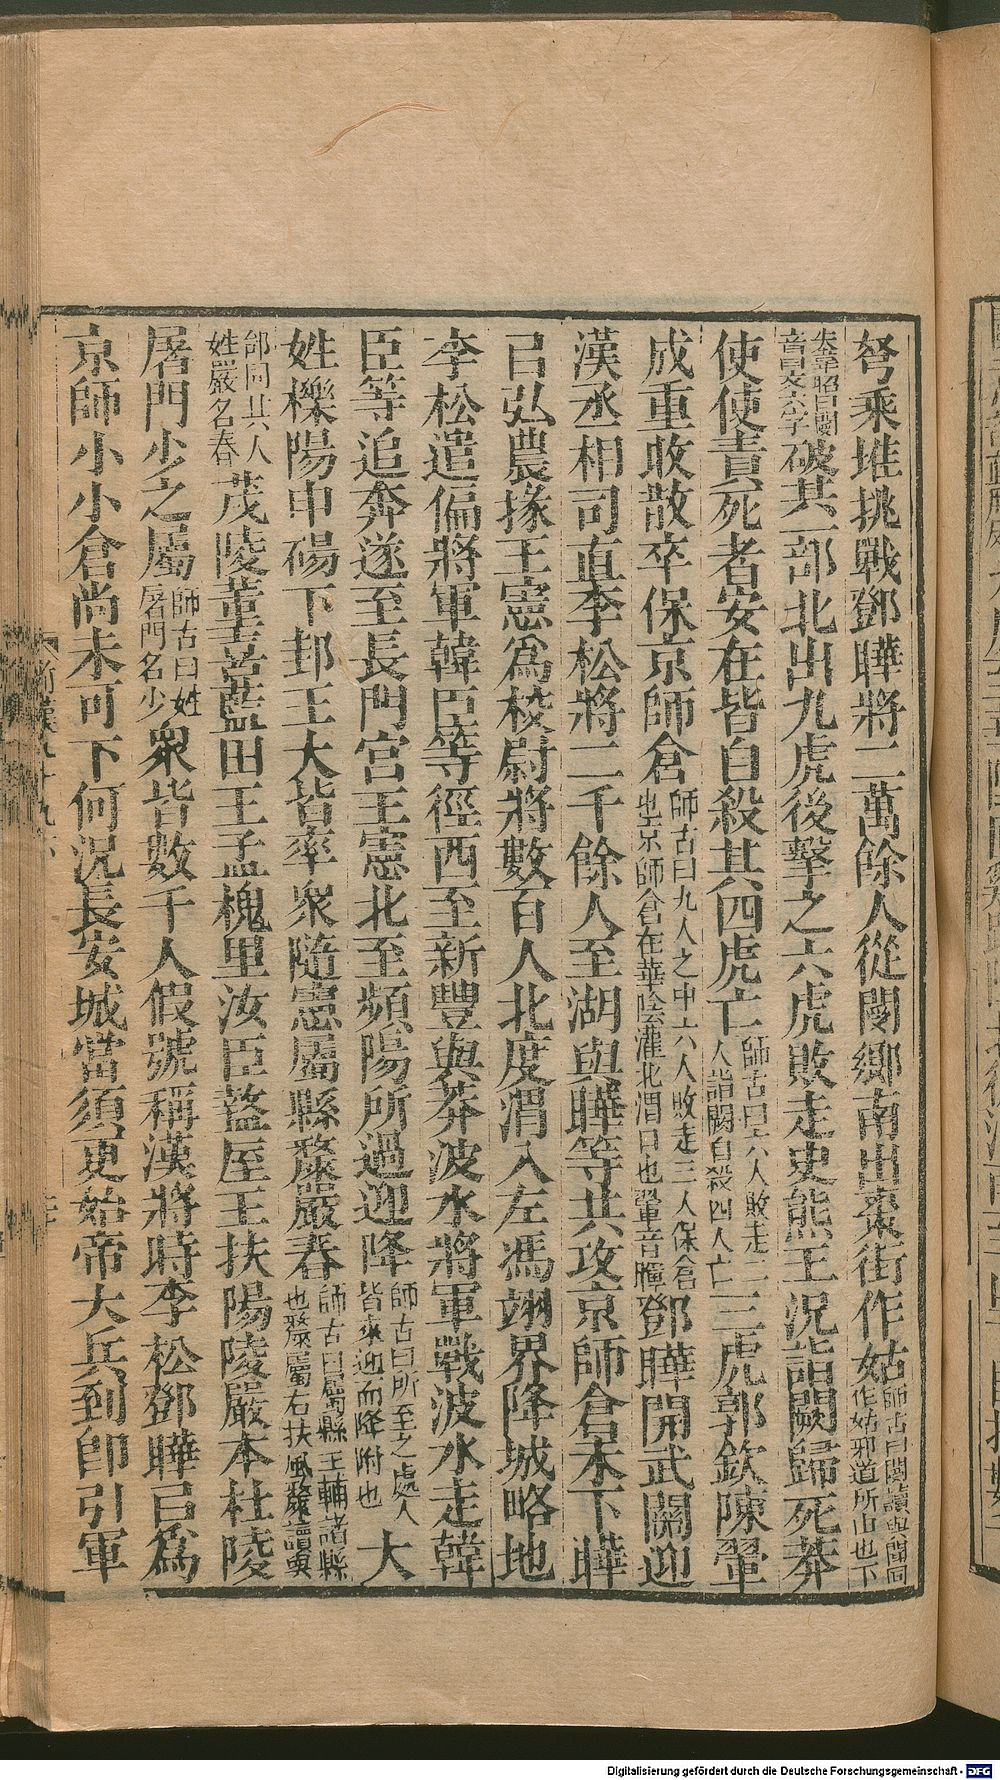 弩乘堆挑戰鄧曄將二萬餘人從閺鄉南出棗街作姑師古曰閺讀與聞同作姑邪道所由也下
失韋昭曰閺音旻天字破其一部北出九虎後擊之六虎敗走史熊王況詣闕歸死莽
使使責死者安在皆自殺其四虎亡師古曰六人敗走二人詣闕自殺四人亡三虎郭欽陳翬
成重收散卒保京師倉師古曰九人之中六人敗走三人保倉也京師倉在華陰灌北渭口也翬音暉鄧曄開武關迎
漢丞相司直李松將二千餘人至湖與曄等共攻京師倉未下曄
㠯弘農掾王憲爲校尉將數百人北度渭入左馮翊界降城略地
李松遣偏將軍韓臣等徑西至新豐與莽波水將軍戰波水走韓
臣等追奔遂至長門宮王憲北至頻陽所過迎降師古曰所至之處人皆來迎而降附也大
姓櫟陽申碭下邽王大皆率衆隨憲屬縣斄嚴春師古曰屬縣三輔諸縣也斄屬右扶風斄讀與
邰同其人姓嚴名春茂陵董喜藍田王孟槐里汝臣盩厔王扶陽陵嚴本杜陵
屠門少之屬師古曰姓屠門名少衆皆數千人假號稱漢將時李松鄧曄㠯爲
京師小小倉尚未可下何況長安城當須更始帝大兵到卽引軍
Digitalisierung gefördert durch die Deutsche Forschungsgemeinschaft - DFG